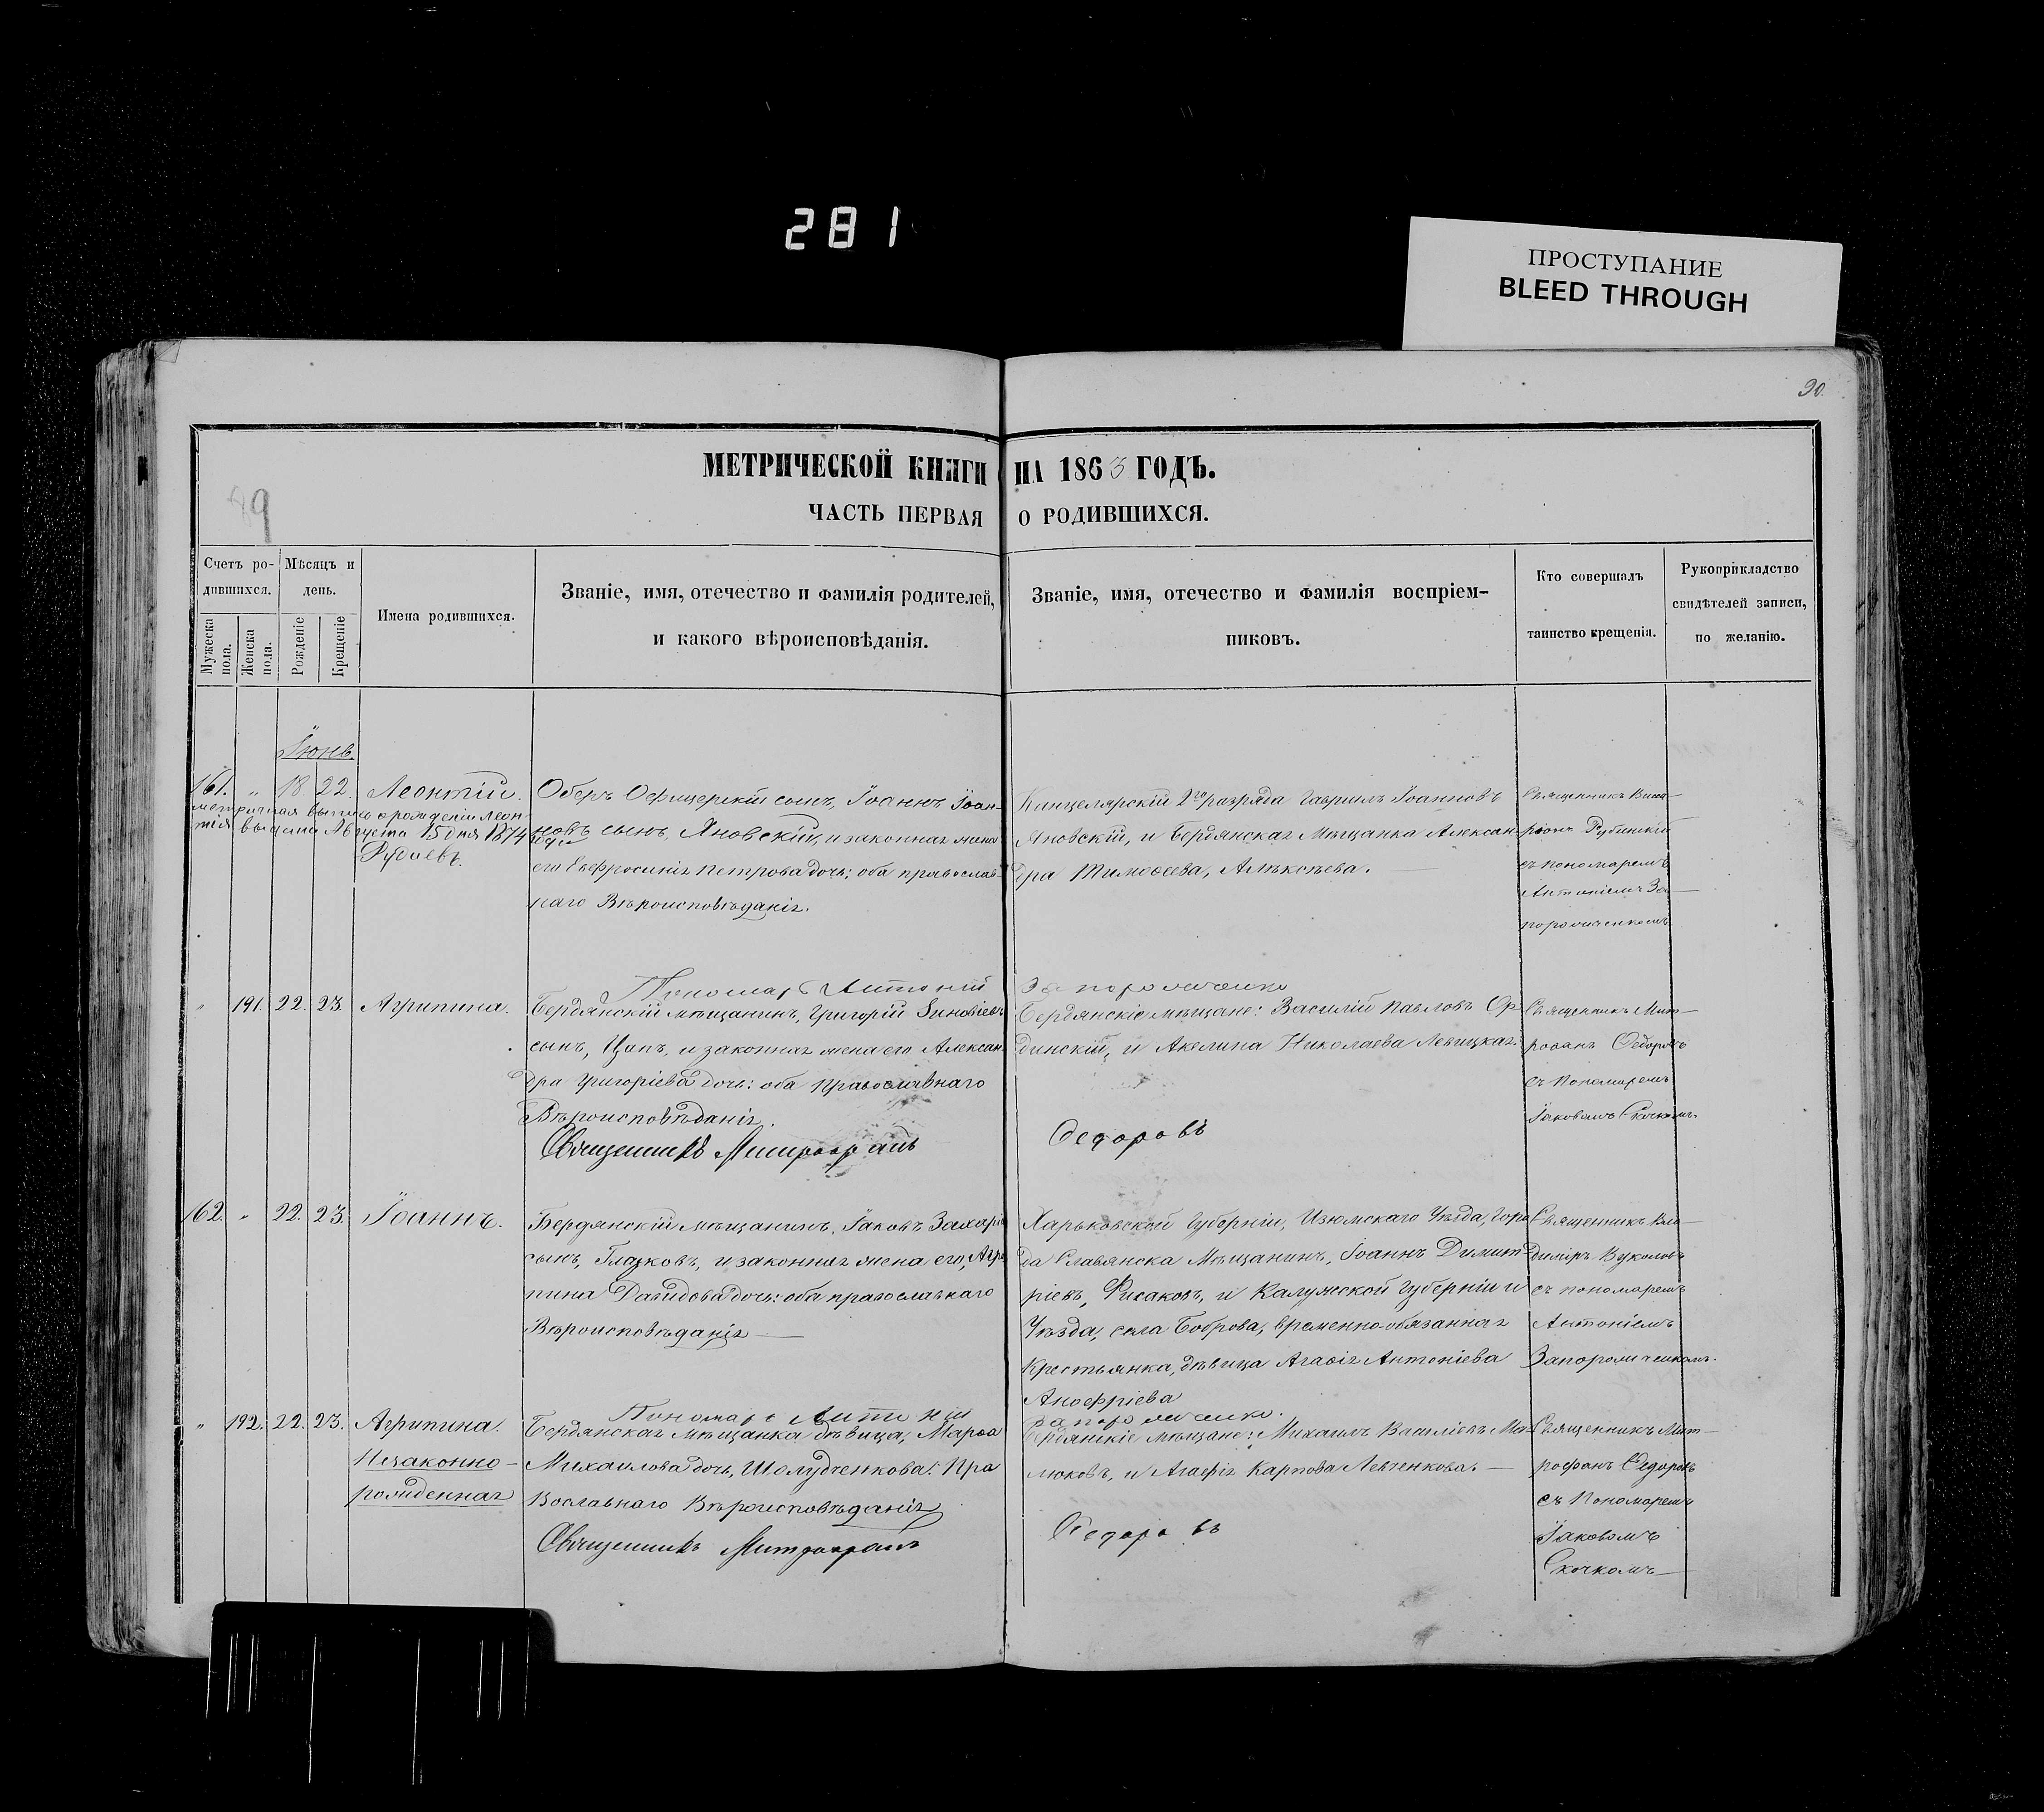 281
ПРОСТУПАНИЕ
BLEED THROUGH
90.
МЕТРИЧЕСКОЙ КНИГИ НА 1863 ГОДЪ.
ЧАСТЬ ПЕРВАЯ О РОДИВШИХСЯ.
Счетъ ро-
дившихся.
Мужеска пола.
Женска пола.
Мѣсяцъ и
день.
Рожденіе
Крещеніе
Имена родившихся.
Званіе, имя, отечество и фамилія родителей,
и какого вѣроисповѣданія.
Званіе, имя, отечество и фамилія воспріем-
никовъ.
Кто совершалъ
таинство крещенія.
Рукоприкладство
свидѣтелей записи,
по желанію.
Іюнь.
161. " 18. 22. Леонтій.
рожденіи Леон-
тія выдана Августа 15 дня 1874
Оберъ Офицерскій сынъ, Іоаннъ Іоан-
новъ сынъ, Яновскій, и законная жена
его Евфросинія Петрова дочь: оба православ-
наго Вѣроисповѣданія.
Канцелярскій 2го разряда Гавріилъ Іоанновъ
Яновскій, и Бердянская Мѣщанка Алексан-
дра Тимоѳеева, Алѣксѣева.
Священникъ Висса-
ріонъ Рубинскій
съ пономаремъ
Антоніемъ За-
порожченкомъ
Пономарь Антоній Запорожченко
" 191. 22. 23. Агрипина.
Бердянскій мѣщанинъ, Григорій Зиновіевъ
сынъ, Цапъ, и законная жена его Алексан-
дра Григоріева дочь: оба Православнаго
Вѣроисповѣданія.
Бердянскіе мѣщане: Василій Павловъ Ор-
динскій, и Акелина Николаева Левицкая.
Священникъ Мит-
рофанъ Ѳедоровъ
съ Пономаремъ
Іаковомъ Скочкомъ.
Священникъ Митрофанъ Ѳедоровъ
162. " 22. 23. Іоаннъ.
Бердянскій мѣщанинъ, Іаковъ Захарі
сынъ, Глазковъ, и законная жена его, Агри
пина Давидова дочь: оба православнаго
Вѣроисповѣданія
Харьковской Губерніи, Изюмскаго Уѣзда, горо
да Славянска Мѣщанинъ, Іоаннъ Димит-
ріевъ, и Калужской Губерніи и
Уѣзда, села Боброва, временно-обязанная
Крестьянка, дѣвица Агафія Антоніева
Анофріева
Священникъ Вла-
диміръ Вуколовъ
съ пономаремъ
Антоніемъ
Запорожченкомъ.
Пономарь Антоній Запорожченко.
" 192. 22. 23. Агрипина.
Незаконно-
рожденная
Бердянская Мѣщанка дѣвица, Марѳа
Михаилова дочь, Шолудченкова: Пра
вославнаго Вѣроисповѣданія
Бердянскіе мѣщане: Михаилъ Василіевъ Ма-
люковъ, и Агафія Карпова Левченкова.
Священникъ Мит-
рофанъ Ѳедоровъ
съ Пономаремъ
Іаковомъ
Скочкомъ
Священникъ Митрофанъ Ѳедоровъ